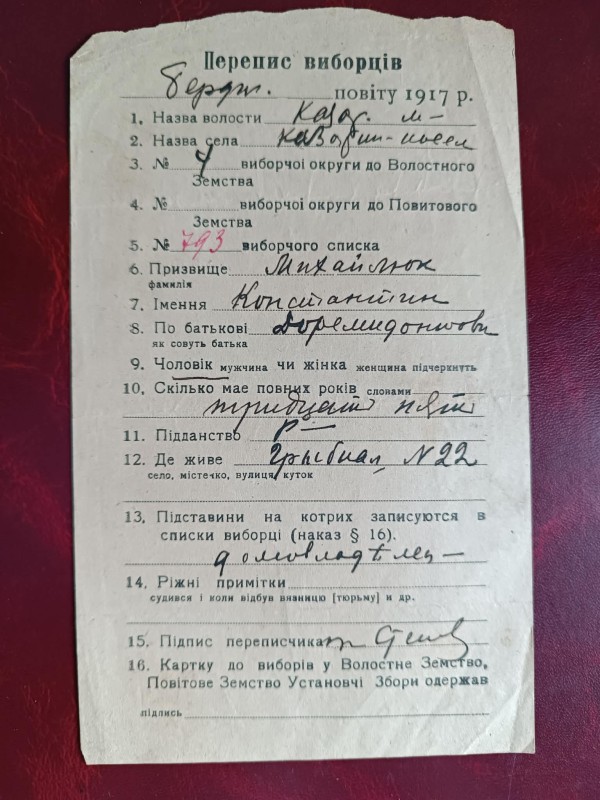 Перепис виборців
Бердич. повіту 1917 р.
1. Назва волости Казат. м-
2. Назва села
3. № 4 виборчої округи до Волостного
Земства
4. № виборчої округи до Повитового
Земства
5. № 793 виборчого списка
6. Призвище Михайлюк
фамилія
7. Імення Константин
8. По батькові
як совуть батька
9. Чоловік мужчина чи жінка женщина підчеркнуть
10. Скілько має повних років словами
тридцать пять
11. Підданство р—
12. Де живе Грыбная, N 22
село, містечко, вулиця, куток
13. Підставини на котрих записуются в
списки виборці (наказ § 16).
домовладѣлец—
14. Ріжні примітки
судився і коли відбув вязницю [тюрьму] и др.
15. Підпис переписчика
16. Картку до виборів у Волостне Земство,
Повітове Земство Установчі Збори одержав
підпись